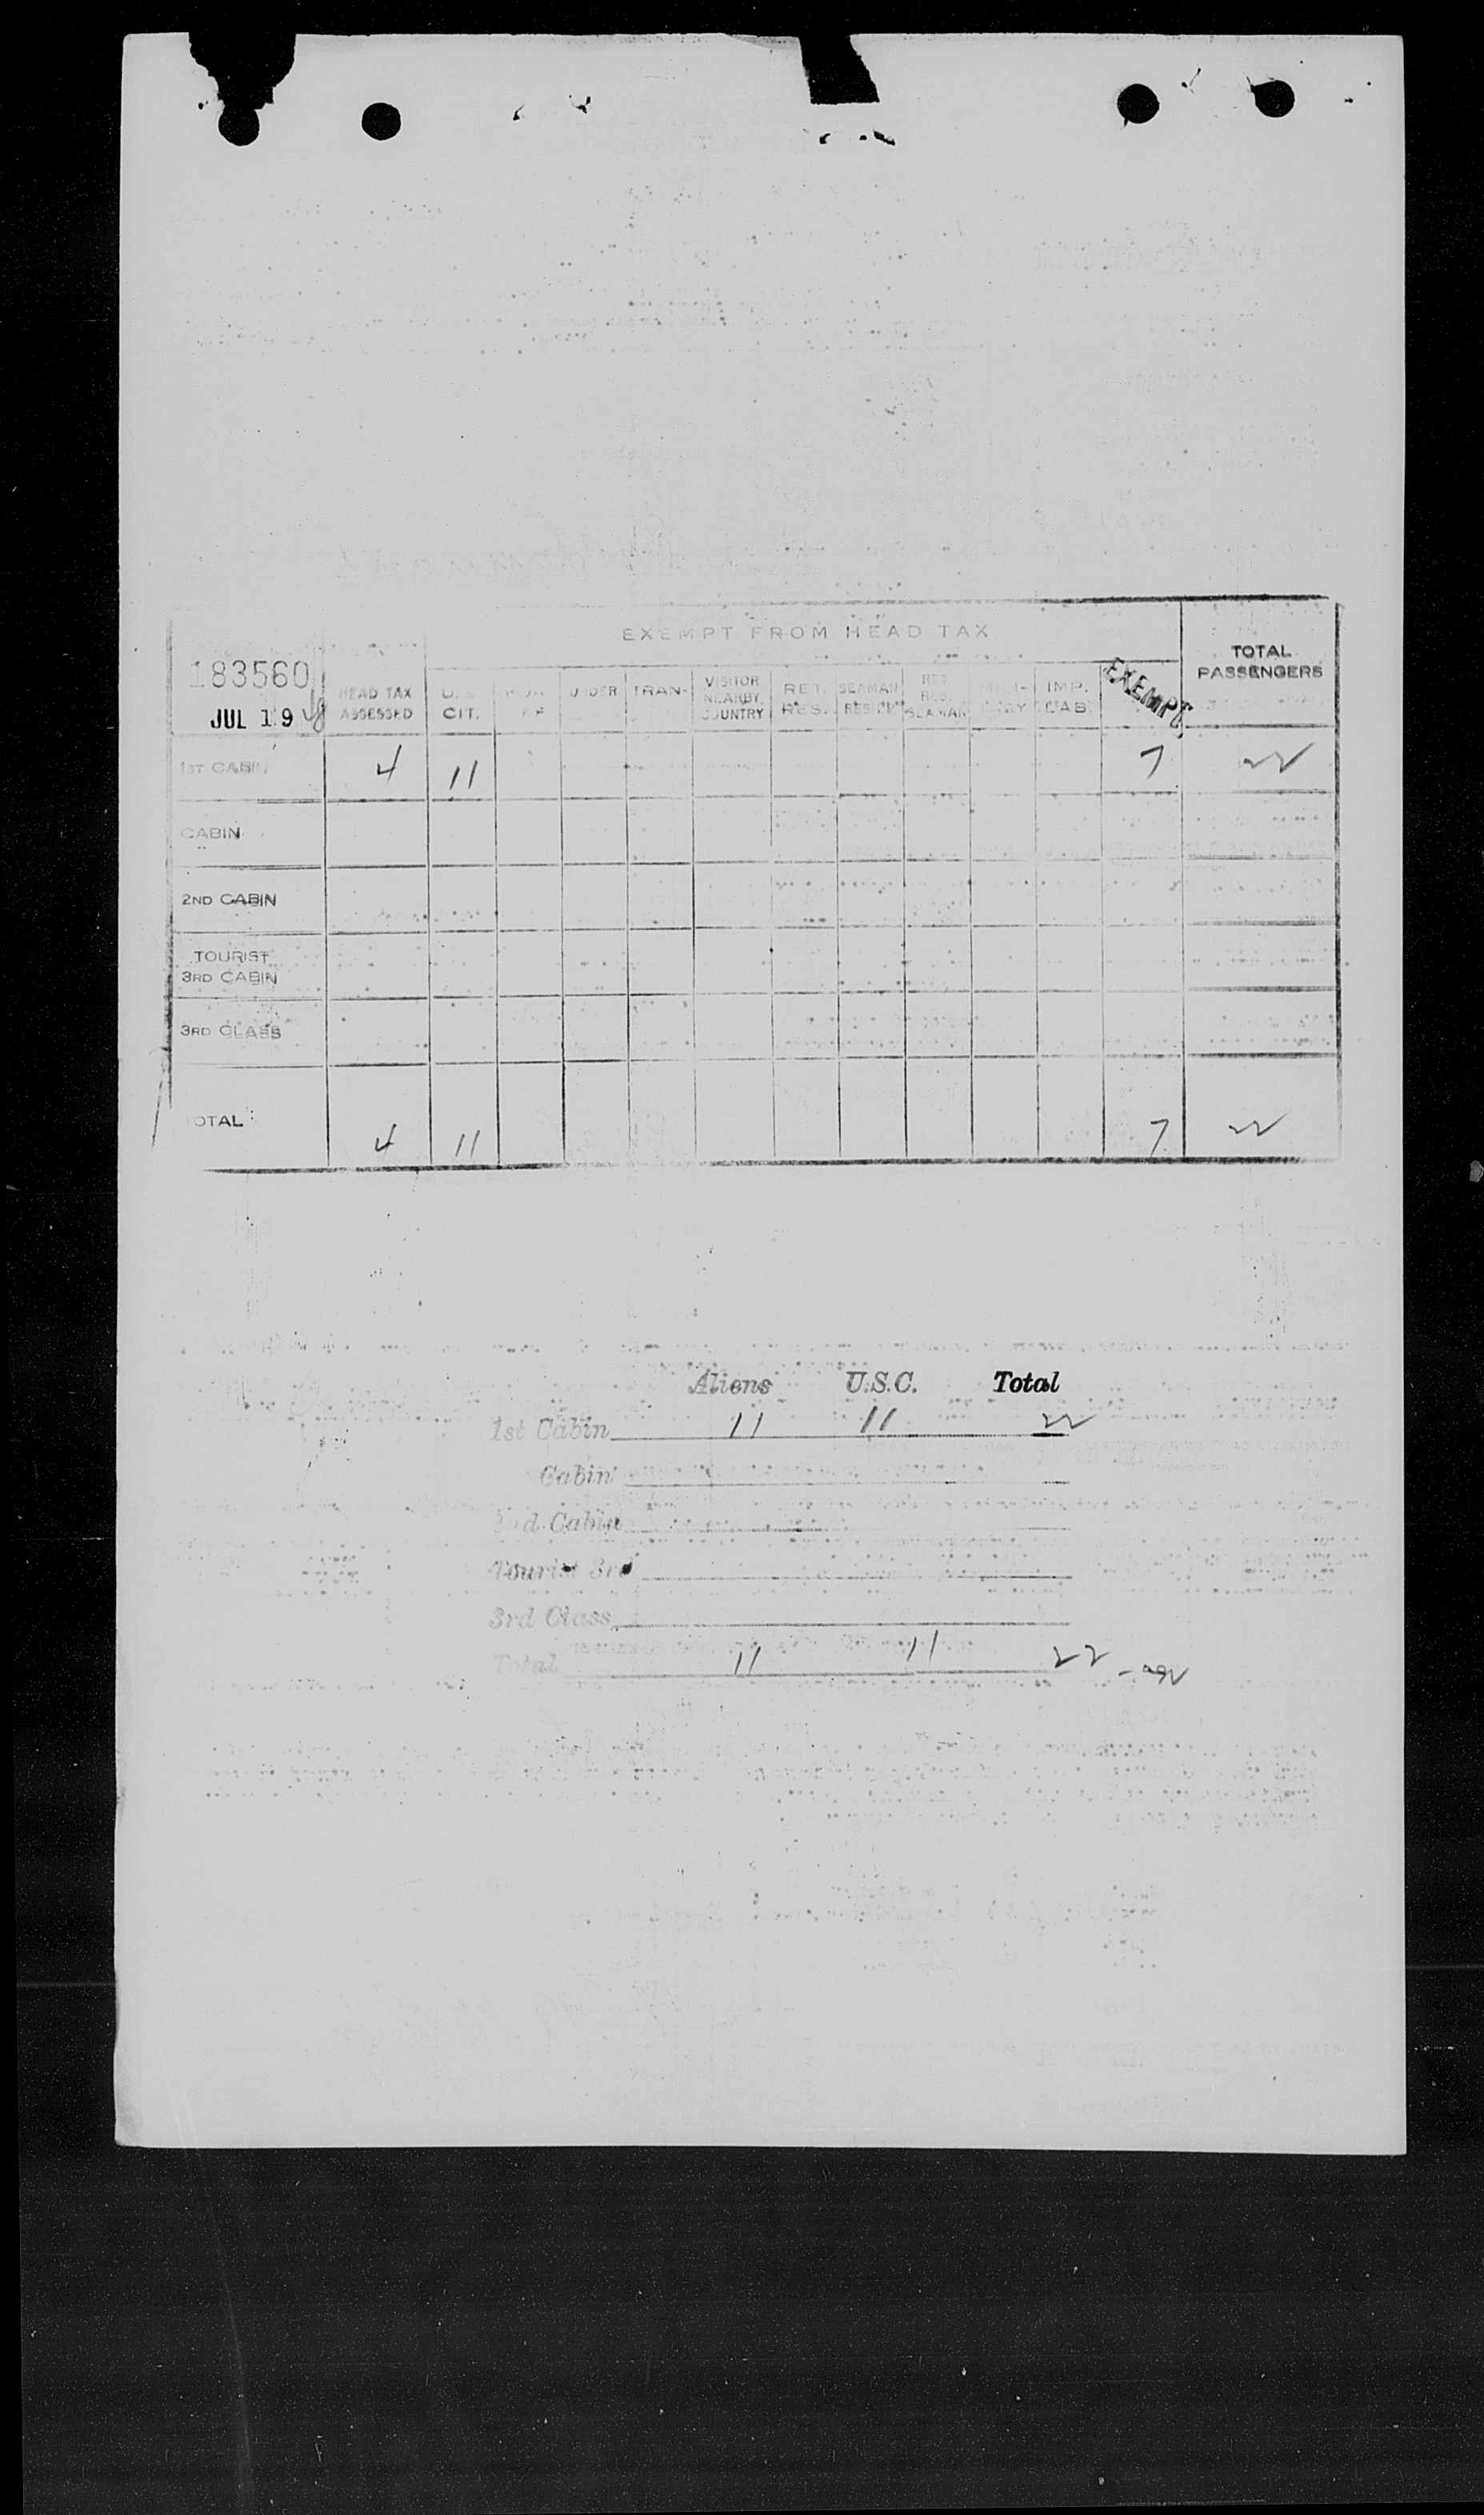 EXEMPT FROM HEAD TAX
183560
JUL 19
HEAD TAX ASSESSED
U.S. CIT.
UNDER
TRAN-
VISITOR NEARBY COUNTRY
RET. RES.
SEAMAN
RET. RES. SEAMAN
IMP. CAB.
EXEMPT
TOTAL PASSENGERS
1ST CABIN 4 11 7 22
CABIN
2ND CABIN
TOURIST
3RD CABIN
3RD CLASS
TOTAL 4 11 7 22
Aliens U.S.C. Total
1st Cabin 11 11 22
Cabin
2nd Cabin
Tourist 3rd
3rd Class
Total 11 11 22